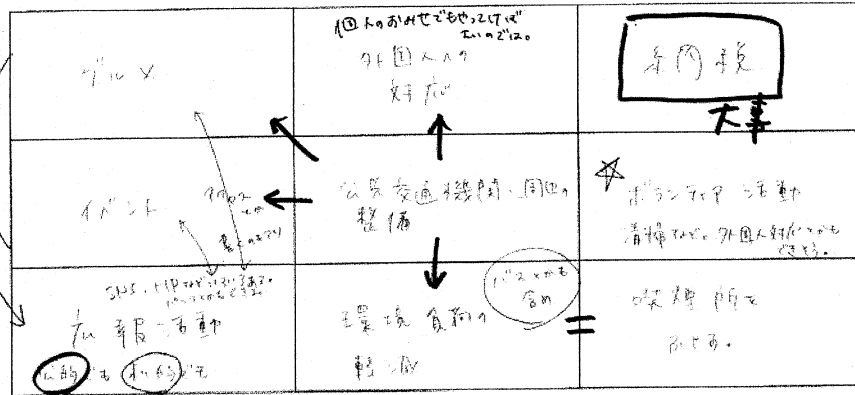 グルメ
個人のおみせでもやっていけば
いいのでは。
外国人への
対応
納税
大事
イベント
アクセス
公共交通機関・周辺の
整備
☆ ボランティア活動
清掃など。外国人対応とかも
できそう。
SNS・HPなど
広報活動
公的でも 私的でも
環境負荷の
軽減
バスとかも
含め
=
喫煙所を
ふやす。